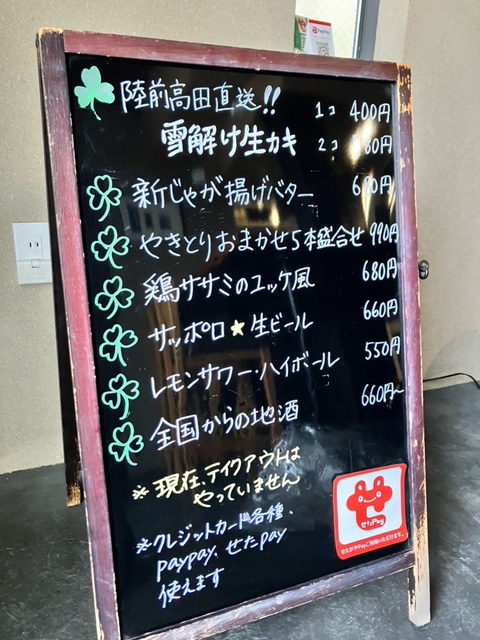 陸前高田直送!!
雪解け生カキ
1コ 400円
2コ
新じゃが揚げバター
やきとりおまかせ5本盛合せ 990円
鶏ササミのユッケ風 680円
サッポロ★生ビール 660円
レモンサワー・ハイボール 550円
全国からの地酒 660円~
※現在、テイクアウトは
やっていません
※クレジットカード各種、
paypay、せたpay
使えます
せたPay
せたがやPayご利用いただけます。
PayPay